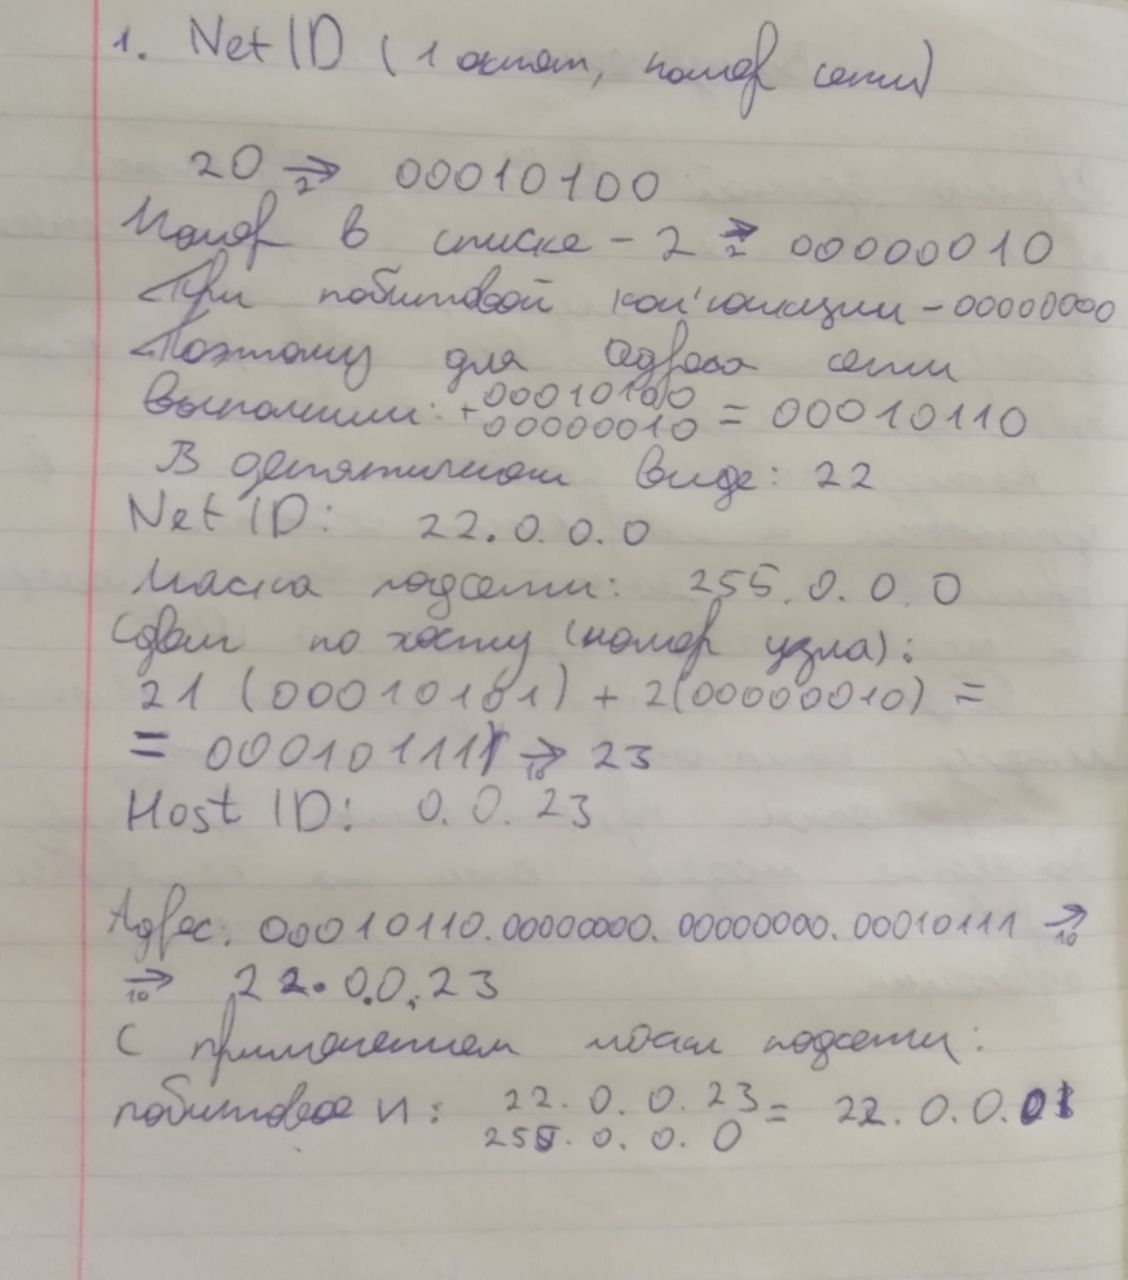 1. Net ID (1 октет, номер сети)
20 ⇒₂ 00010100
Номер в списке - 2 ⇒₂ 00000010
При побитовой кон'юнкции - 00000000
Поэтому для адреса сети
выполним: + 00010100
00000010 = 00010110
В десятичном виде: 22
Net ID: 22.0.0.0
Маска подсети: 255.0.0.0
Сдвиг по хосту (номер узла):
21 (00010101) + 2(00000010) =
= 00010111 ⇒₁₀ 23
Host ID: 0.0.23
Адрес: 00010110.00000000.00000000.00010111 ⇒₁₀
⇒₁₀ 22.0.0.23
С применением маски подсети:
побитовое И: 22.0.0.23
255.0.0.0 = 22.0.0.